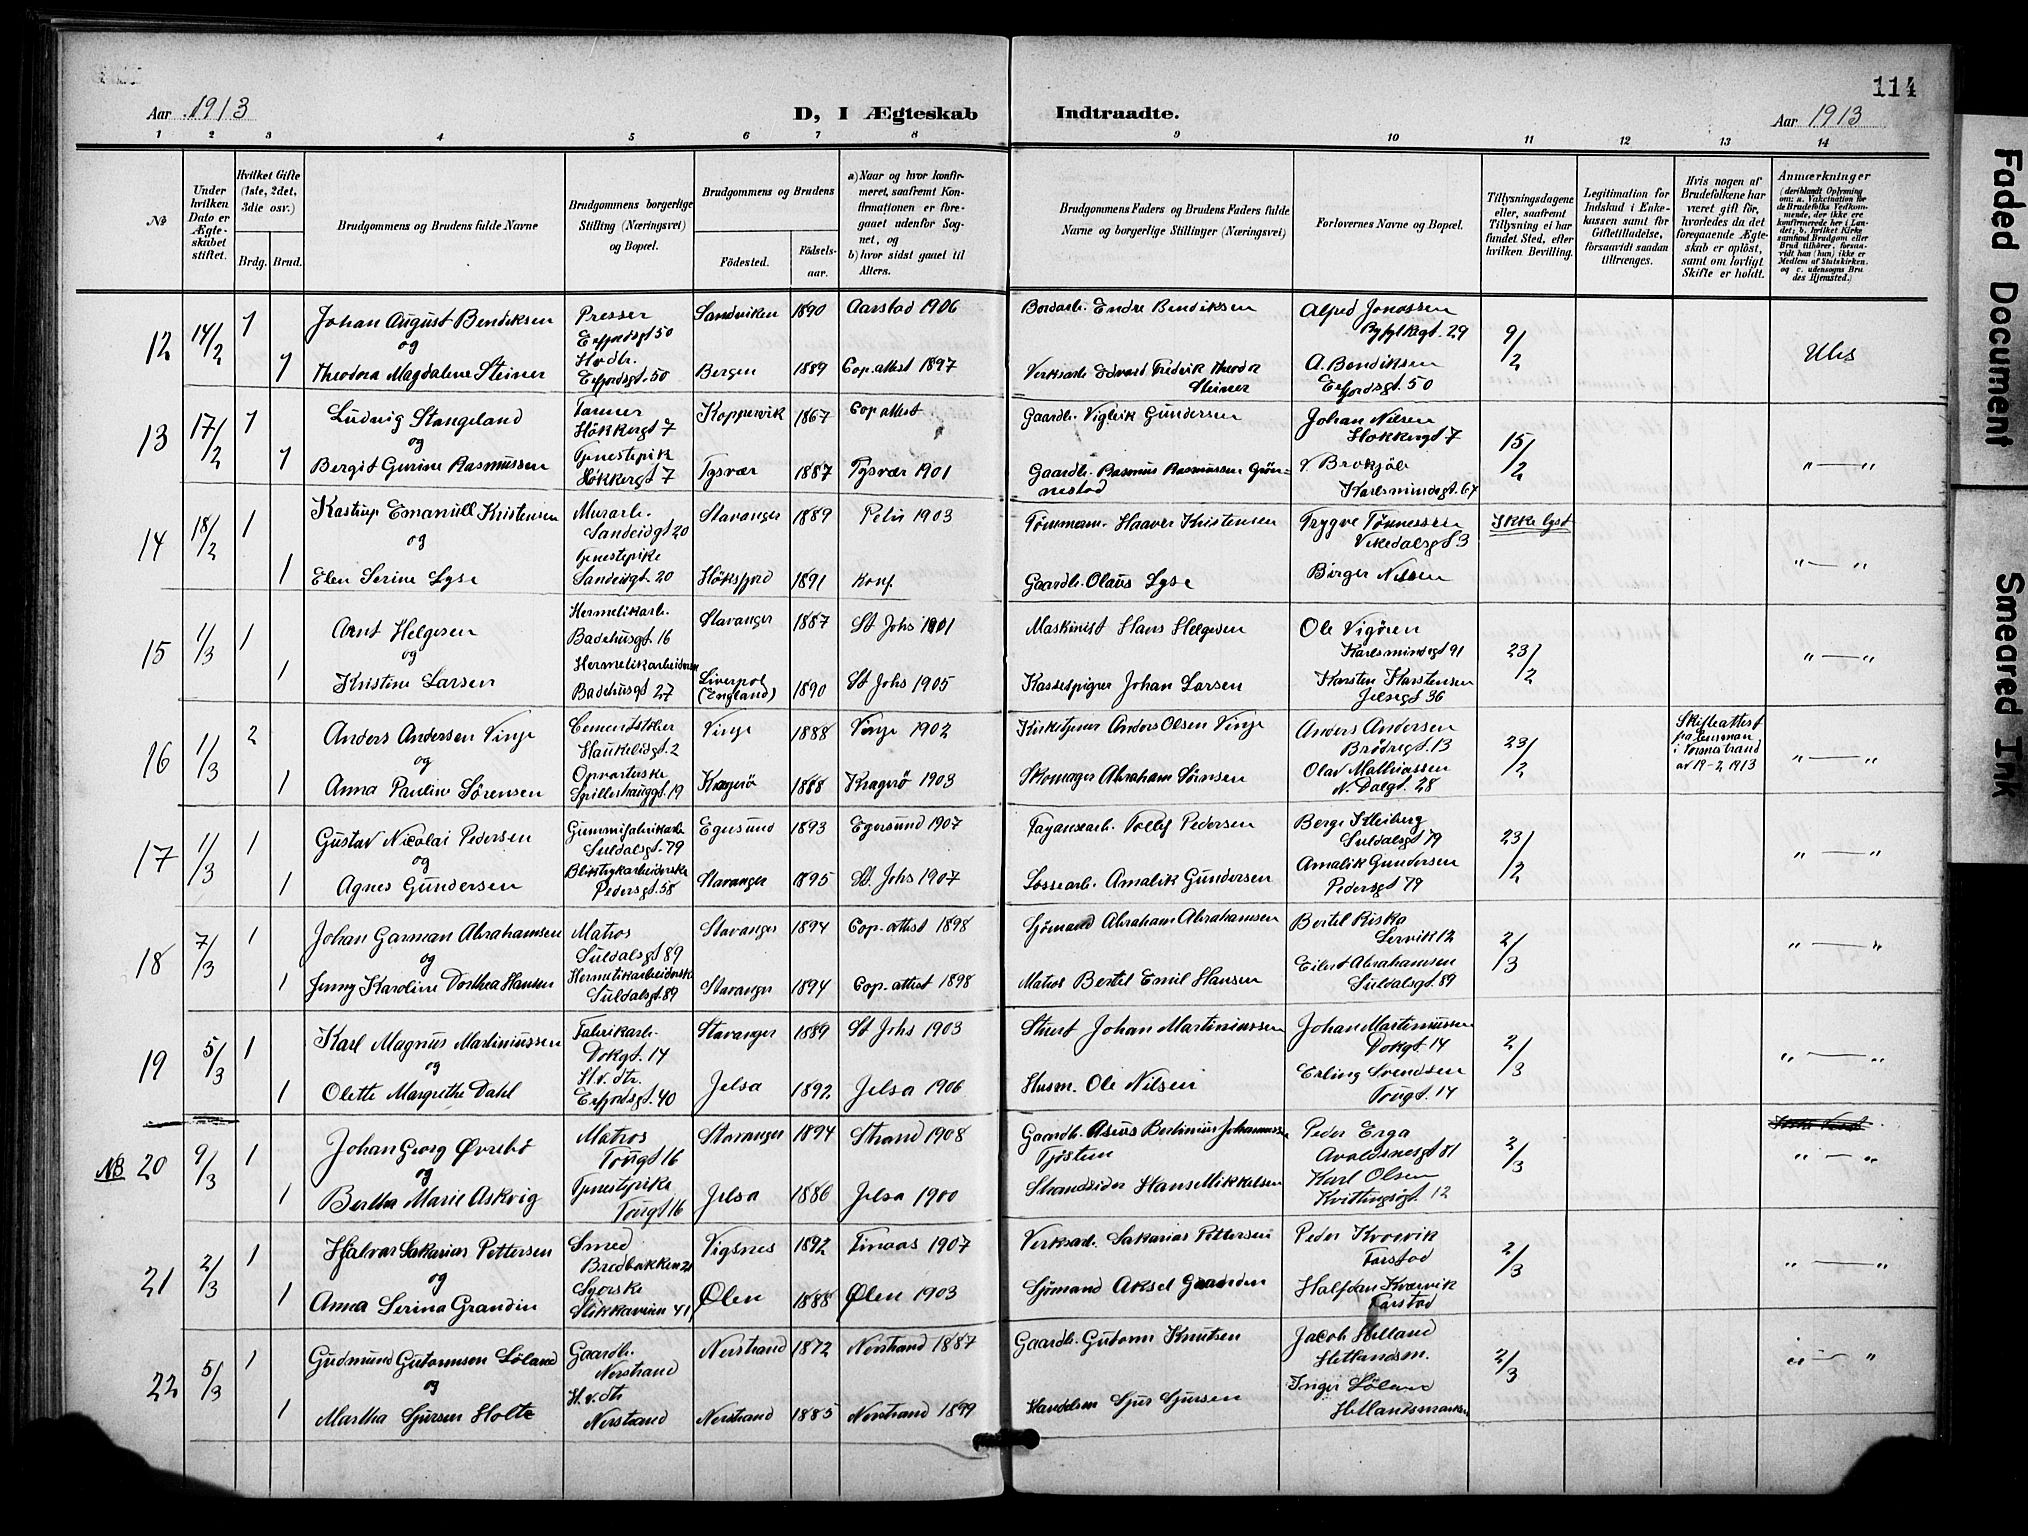 114
Aar 1913
D, I Ægteskab Indtraadte.
Aar 1913
1 2 3 4 5 6 7 8 9 10 11 12 13 14
No
Under hvilken Dato er Ægteskabet stiftet.
Hvilket Gifte (1ste, 2det, 3die osv.)
Brdg. Brud.
Brudgommens og Brudens fulde Navne
Brudgommens borgerlige Stilling (Næringsvei) og Bopæl.
Brudgommens og Brudens
Fødested.
Fødselsaar.
a) Naar og hvor konfirmeret, saafremt Konfirmationen er foregaaet udenfor Sognet, og
b) hvor sidst gaaet til Alters.
Brudgommens Faders og Brudens Faders fulde Navne og borgerlige Stillinger (Næringsvei)
Forlovernes Navne og Bopæl.
Tillysningsdagene eller, saafremt Tillysning ei har fundet Sted, efter hvilken Bevilling.
Legitimation for Indskud i Enkekassen samt for Giftetilladelse, forsaavidt saadan tiltrænges.
Hvis nogen af Brudefolkene har været gift før, hvorledes da det foregaaende Ægteskab er opløst, samt om lovligt Skifte er holdt.
Anmærkninger
(deriblandt Oplysning om: a. Vakcination for de Brudefolks Vedkommende, der ikke ere konfirmerede her i Landet; b. hvilket Kirkesamfund Brudgom eller Brud tilhører, forsaavidt han (hun) ikke er Medlem af Statskirken, og c. udensogns Brudes Hjemsted.)
12 14/2 1 Johan August Bendiksen Presser Erfjordsgt 50 Sandviken 1890 Aarstad 1906 Bordarb. Endre Bendiksen Alfred Jonassen Ryfylkegt. 29 9/2
og
1 Theodora Magdalene Steiner Hvdtr. Erfjordsgt. 50 Bergen 1889 Cop. attest 1897 Verksarb. Edvard Fredrik Theodor Steiner A. Bendiksen Erfjordsgt. 50
13 17/2 1 Ludvig Stangeland Tømmer Høkkergt 7 Koppervik 1867 Cop attest Gaardb. Vigleik Gundersen Johan Nilsen Hokkergt 7 15/2 " — "
og
1 Bergit Gurine Rasmussen Tjenestepik Høkkergt 7 Tysvær 1887 Tysvær 1901 Gaardb. Rasmus Rasmussen Grønnestad V Brekjøb Karlsmindegt. 67
14 18/2 1 Kastrup Emanuell Kristensen Murarb. Sandeidgt 20 Stavanger 1889 Petri 1903 Tømmerm. Haaver Kristensen Trygve Tønnessen Vikedalsgt 3 Ikke lyst " — "
og
1 Elen Serine Lyse Tjenestepike Sandeidgt. 20 Høksfjord 1891 Konf. Gaardb. Olaus Lyse Birger Nilsen
15 1/3 1 Arnt Helgesen Hermetikarb. Badehusgt. 16 Stavanger 1887 St Johs 1901 Maskinist Hans Helgesen Ole Vigøren Karlsmindegt 91 23/2 " — "
og
1 Kristine Larsen Hermetikarbeiderske Badehusgt 27 Liverpol (England) 1890 St Johs 1905 Johan Larsen Karsten Karstensen Jelsegt 36
16 1/3 2 Anders Andersen Vinje Cementstøber Haukelidgt 2 Vinje 1888 Vinje 1902 Kirketjener Anders Olsen Vinje Anders Andersen Brødregt. 13 23/2 Skifteattest fra lensman i Nerstrand av 19-2 1913 " — "
og
1 Anna Pauline Sørensen Opvarterske Spillerhauggt. 19 Kragerø 1888 Kragerø 1903 Skomager Abraham Sørensen Olav Mathiassen N. Dalgt. 28
17 1/3 1 Gustav Nicolai Pedersen Gummifabrikarb. Suldalsgt. 79 Egersund 1893 Egersund 1907 Fayansearb. Tollef Pedersen Berge Kleiberg Suldalsgt 79 23/2 " — "
og
1 Agnes Gundersen Bliktrykarbeiderske Pedersgt. 58 Stavanger 1895 St. Johs 1907 Lossearb. Amalik Gundersen Amalik Gundersen Pedersgt 79
18 7/3 1 Johan Garman Abrahamsen Matros Suldalsgt 89 Stavanger 1894 Cop. attest 1898 Sjømand Abraham Abrahamsen Bertel Riska Lervik 12 2/3 " — "
og
1 Jenny Karoline Dorthea Hansen Hermetikarbeiderske Suldalsgt. 89 Stavanger 1894 Cop. attest 1898 Matros Bertel Emil Hansen Eilert Abrahamsen Suldalsgt. 89
19 5/3 1 Karl Magnus Martiniussen Fabrikarb. Dokgt. 14 Stavanger 1889 St Johs 1903 Stuert Johan Martiniussen Johan Martiniussen Dokgt. 14 2/3 " — "
og
1 Olette Margrethe Dahl H.v. dtr. Erfjordsgt. 40 Jelsa 1892 Jelsa 1906 Husm. Ole Nilsen Erling Svendsen Tougt. 14
NB 20 9/3 1 Johan Georg Øvrebø Matros Tougt 16 Stavanger 1894 Strand 1908 Gaardb. Asius Bertinius Johannessen Tjøstem Peder Erga Avaldsnesgt 81 2/3 " — "
og
1 Bertha Marie Askvig Tjenestepike Tougt 16 Jelsa 1886 Jelsa 1900 Strandsider Hans Mikkelsen Karl Olsen Kvittingsøgt. 12
21 2/3 1 Hjalmar Sakarias Pettersen Smed Bredbakken 21 Vigsnes 1892 Tinaas 1907 Verksarb. Sakarias Pettersen Peder Kvævik Farstad 2/3 " — "
og
1 Anna Serina Grandin Syerske Stikkaveien 41 Ølen 1888 Ølen 1903 Sjømand Aksel Grandin Halfdan Kvævik Farstad
22 5/3 1 Gudmund Gutormsen Løland Gaardb. Nerstrand Nerstrand 1872 Nerstrand 1887 Gaardb. Gutorm Knutsen Jacob Helland Hetlandsm. 2/3 " — "
og
1 Martha Sjursen Holte H.v. dtr Nerstrand Nerstrand 1885 Nerstrand 1899 Handelsm Sjur Sjursen Inger Løland Hetlandsmarken
Faded Document
Smeared Ink